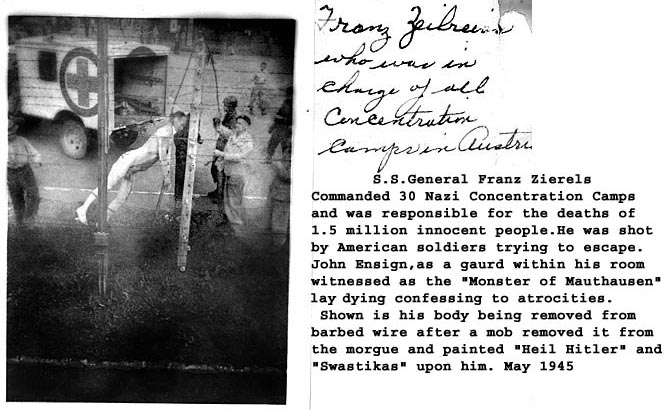 Franz Zeilreis
who was in
charge of all
Concentration
camps in Austri
S.S.General Franz Zierels
Commanded 30 Nazi Concentration Camps
and was responsible for the deaths of
1.5 million innocent people.He was shot
by American soldiers trying to escape.
John Ensign,as a gaurd within his room
witnessed as the "Monster of Mauthausen"
lay dying confessing to atrocities.
Shown is his body being removed from
barbed wire after a mob removed it from
the morgue and painted "Heil Hitler" and
"Swastikas" upon him. May 1945